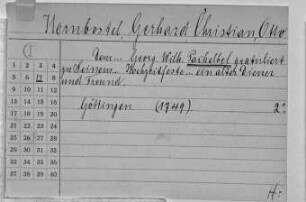 Hornbostel, Gerhard Christian Otto
(I
Dem... Georg Wilh. Pachelbel gratuliert
zu Seinem... Hochzeitfeste... ein alter Diener
und Freund.
Göttingen (1749) 2°
1 2 3 4
5 6 8
9 10 11 12
13 14 15 16
17 18 19 20
21 22 23 24
25 26 27 28
29 30 31 32
33 34 35 36
37 38 39 40